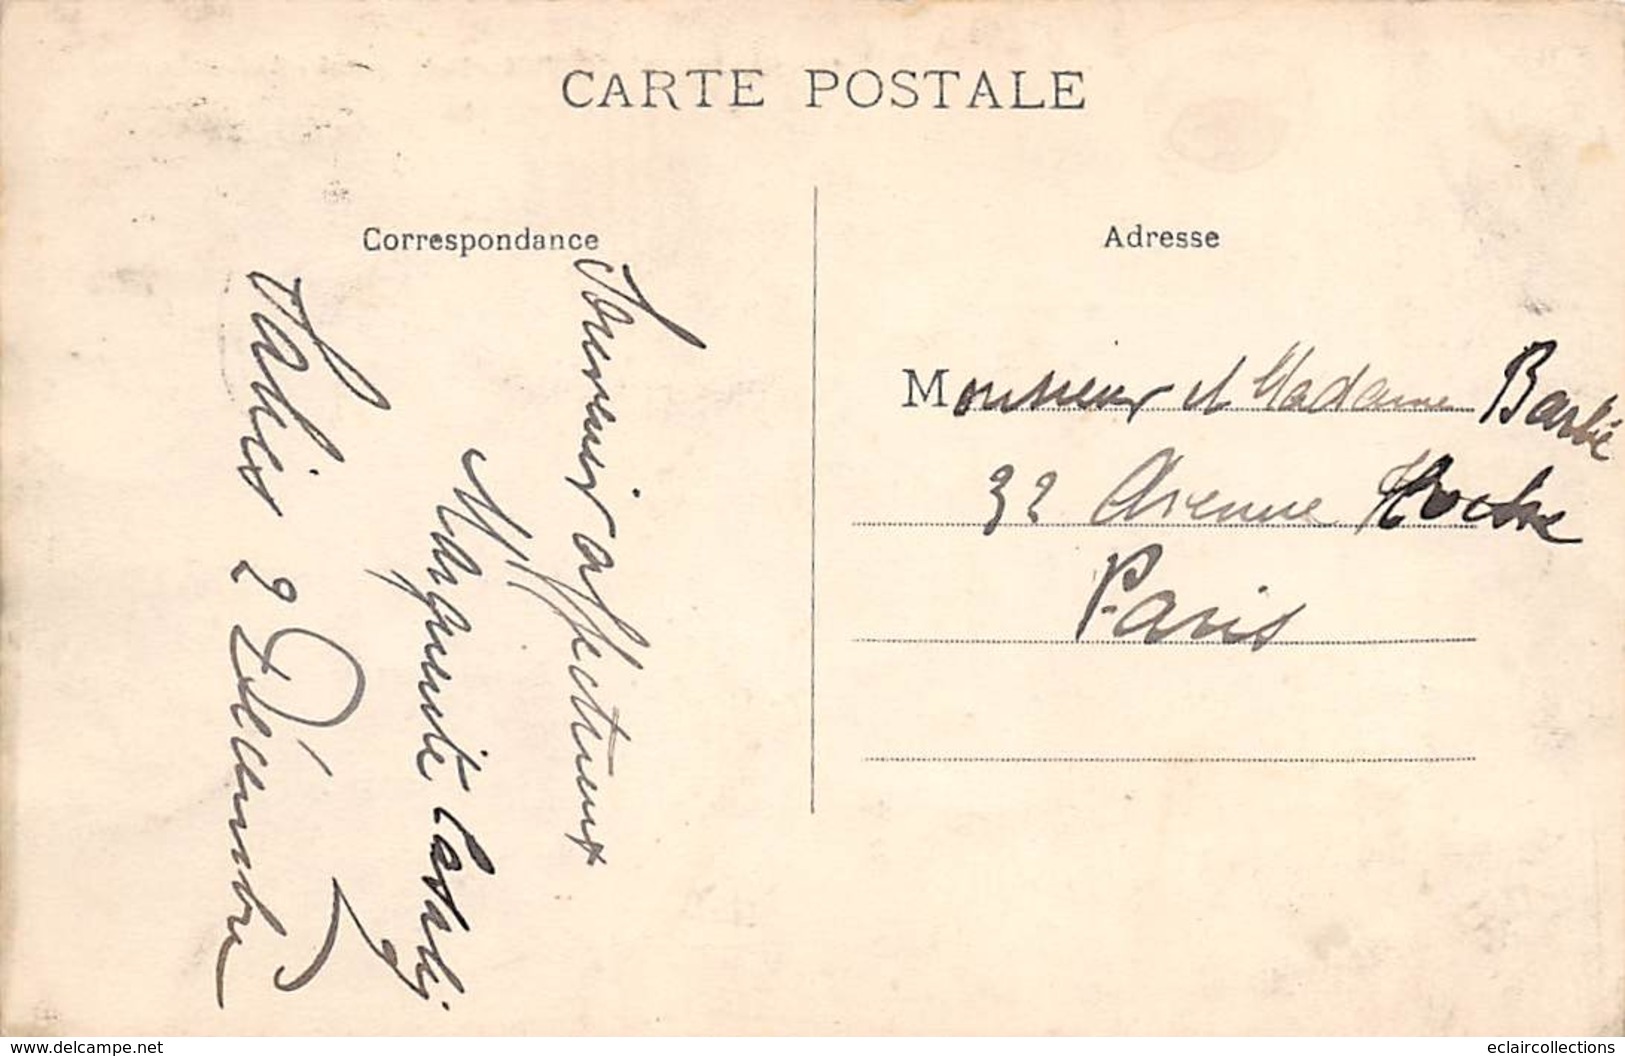 CARTE POSTALE
Correspondance
Souvenir affectueux
Marguerite
2 Décembre
Adresse
Monsieur et Madame Barbié
32 Avenue Hoche
Paris
www.delcampe.net
eclaircollections